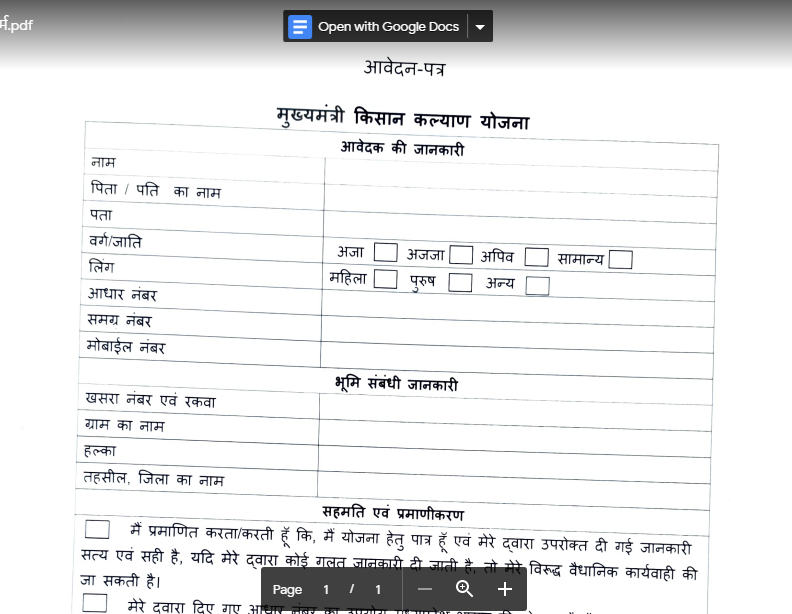 र्म.pdf
Open with Google Docs
आवेदन-पत्र
मुख्यमंत्री किसान कल्याण योजना
आवेदक की जानकारी
नाम
पिता / पति का नाम
पता
वर्ग/जाति अजा अजजा अपिव सामान्य
लिंग महिला पुरुष अन्य
आधार नंबर
समग्र नंबर
मोबाईल नंबर
भूमि संबंधी जानकारी
खसरा नंबर एवं रकवा
ग्राम का नाम
हल्का
तहसील, जिला का नाम
सहमति एवं प्रमाणीकरण
मैं प्रमाणित करता/करती हूँ कि, मैं योजना हेतु पात्र हूँ एवं मेरे द्वारा उपरोक्त दी गई जानकारी
सत्य एवं सही है, यदि मेरे द्वारा कोई गलत जानकारी दी जाती है, तो मेरे विरूद्ध वैधानिक कार्यवाही की
जा सकती है।
Page 1 / 1
मेरे द्वारा दिए गए आधार नंबर का उपयोग